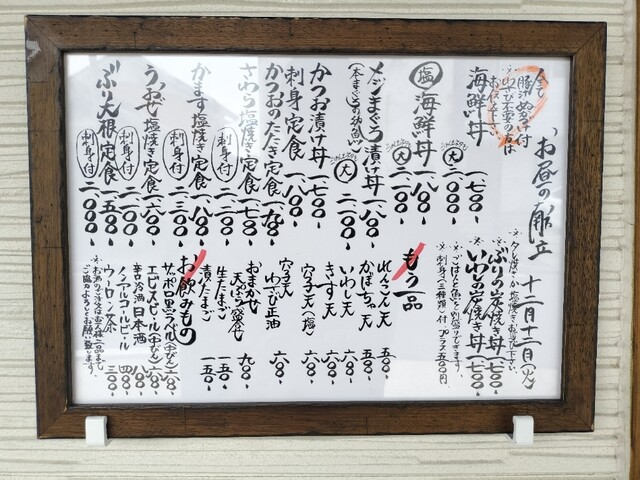 お昼の献立 十二月十二日(火)
全て
豚汁、ぬか漬け付
お伝え下さい
海鮮丼 一、七〇〇
大 二、〇〇〇
塩 海鮮丼 一、八〇〇
大 二、一〇〇
メジまぐろ漬け丼 一、八〇〇
(本まぐろの幼魚)
かつお漬け丼 一、七〇〇
刺身定食 一、八〇〇
かつおのたたき定食 一、九〇〇
さわら塩焼き定食
刺身付
かます塩焼き定食 一、八〇〇
刺身付
塩焼き定食
刺身付
ぶり大根定食 一、五〇〇
刺身付 二、〇〇〇
タレ焼きか塩焼きお選び下さい。
ぶりの炭焼き丼 一、七〇〇
いわしの炭焼き丼 一、五〇〇
※ごはんと魚と別盛りできます。
※刺身(三種類)付 プラス五〇〇円
もう一品
れんこん天 五〇〇
かぼちゃ天 五〇〇
いわし天
きす天 六〇〇
穴子天(塩) 六〇〇
穴子天
わさび正油 六〇〇
おまかせ
天ぷら盛合せ 九〇〇
生たまご
漬けたまご 一五〇
お飲みもの
サッポロ黒ラベル(中びん)
エビスビール(中びん)
辛口冷酒 日本酒
ノンアルコールビール 四〇〇
ウーロン茶 三〇〇
※お酒のご注文はお一人様二品まで
ご協力よろしくお願い致します。